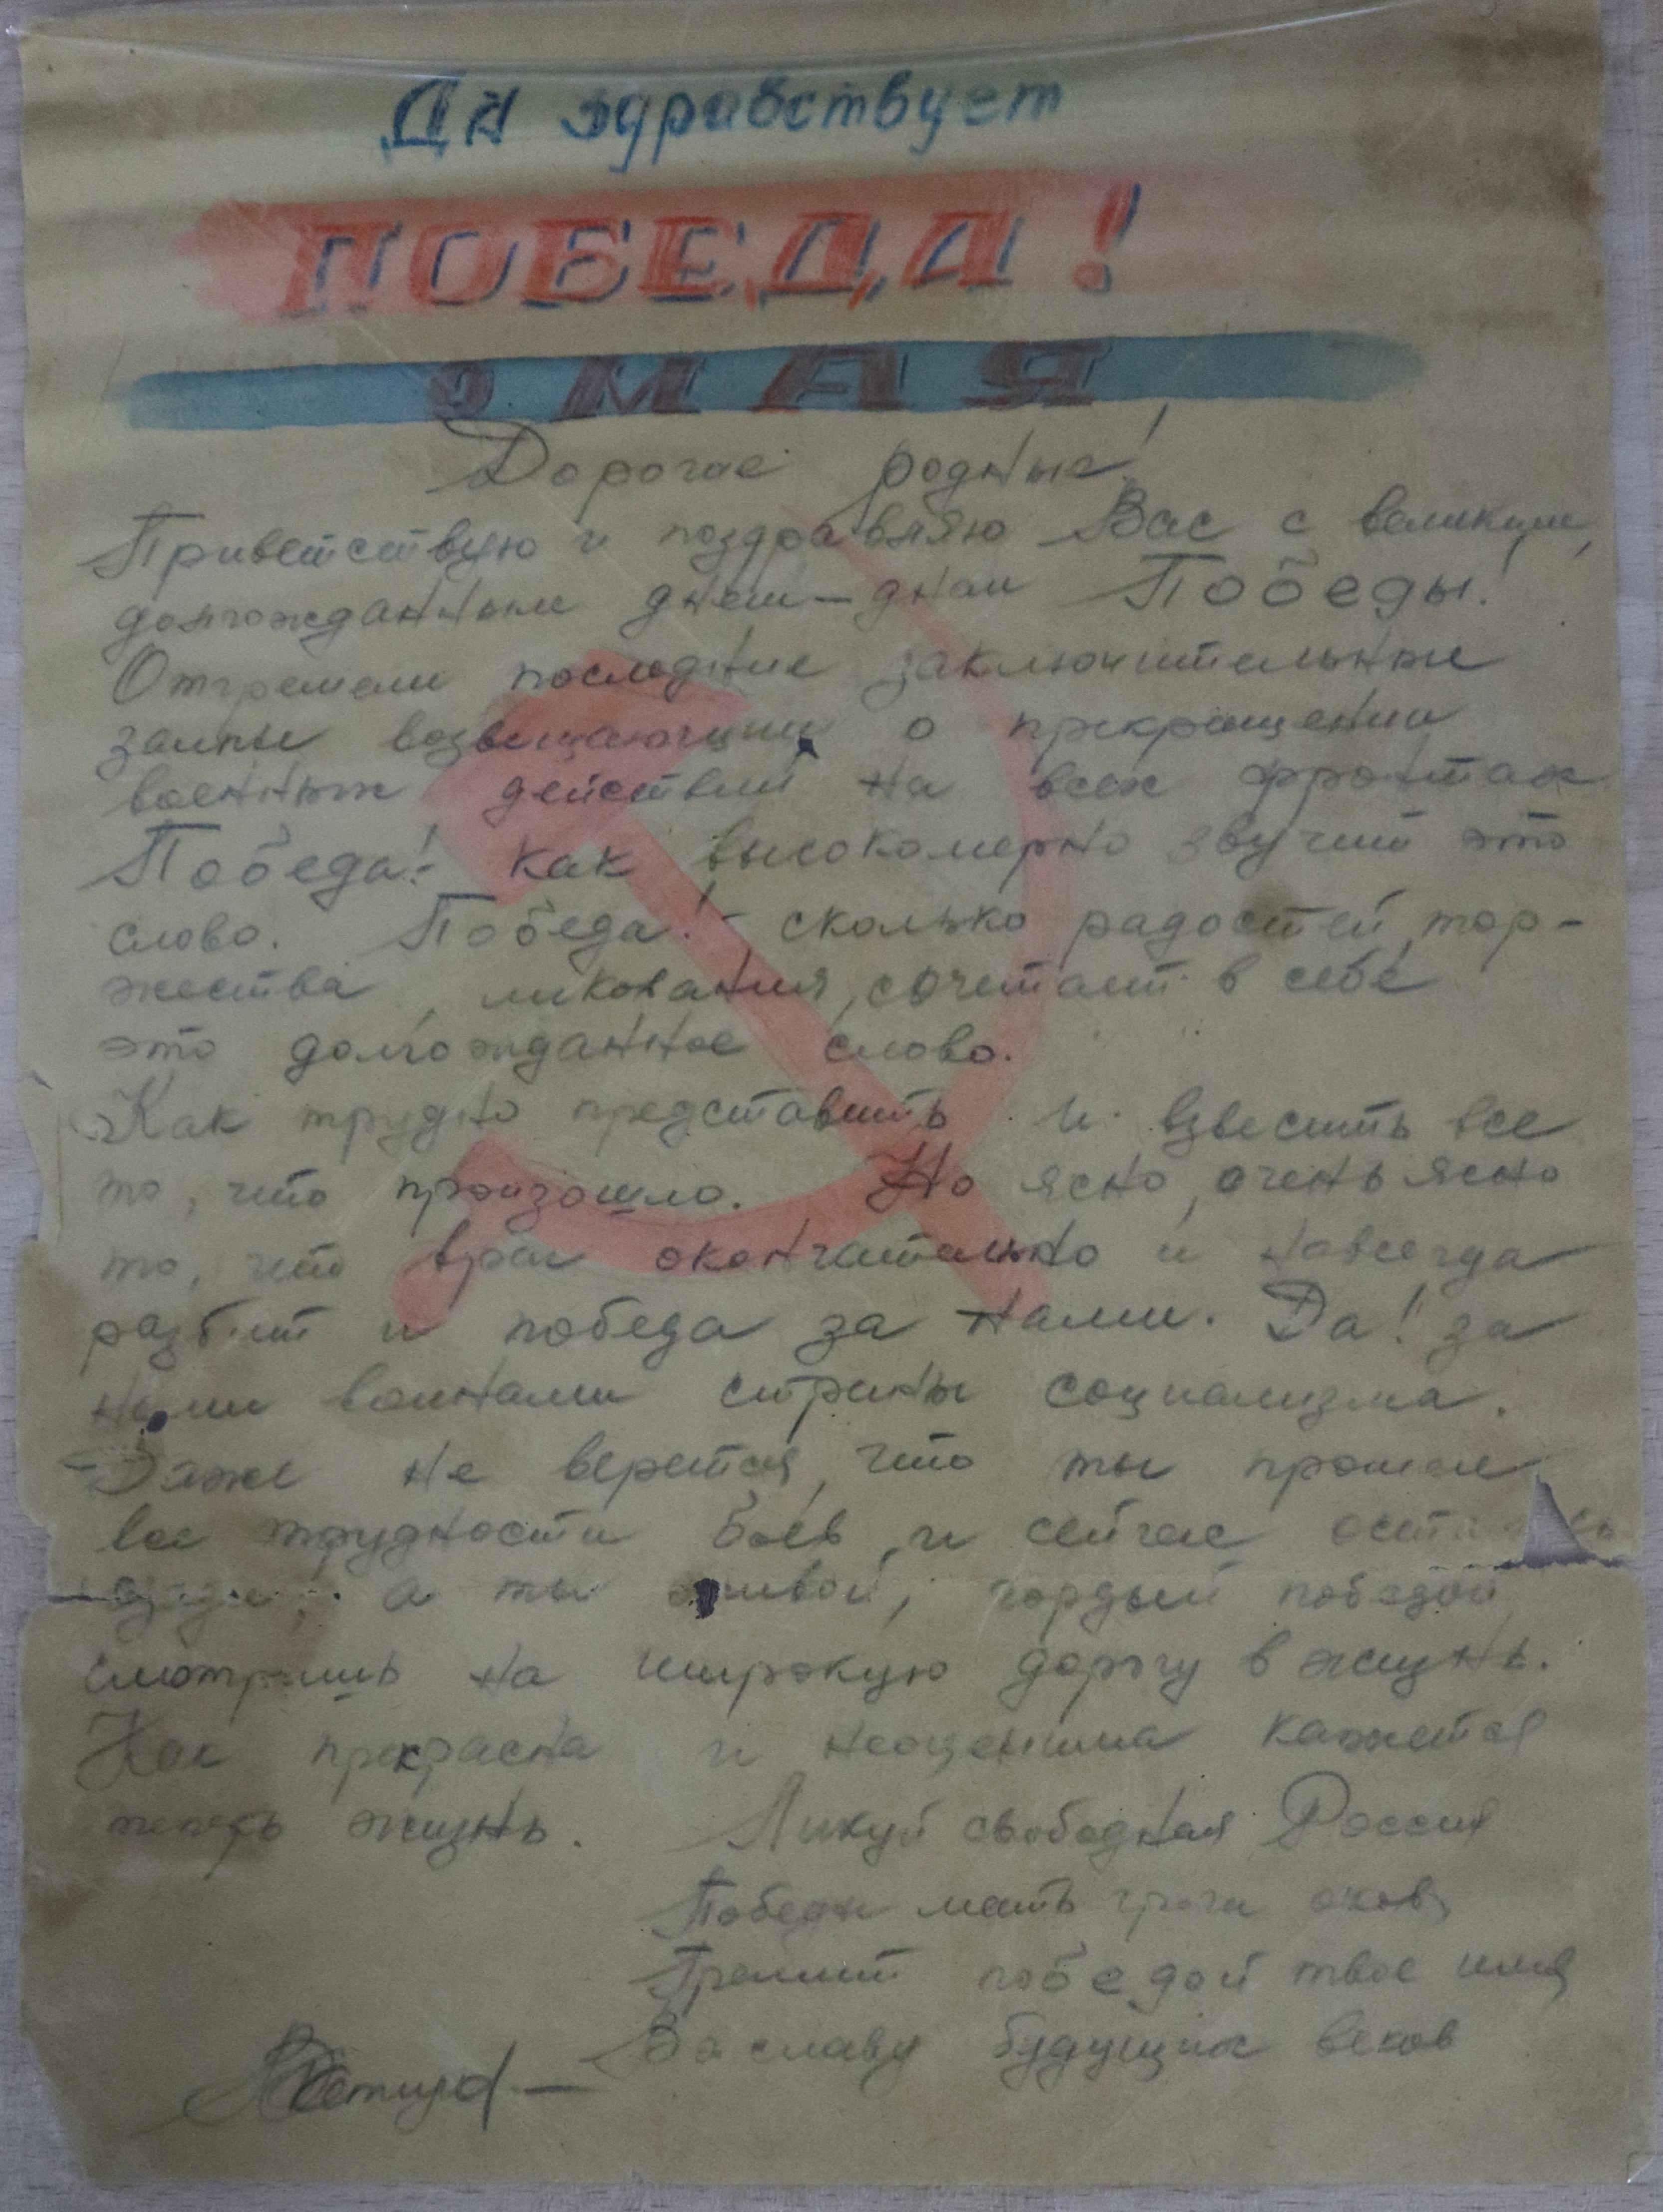 Да здравствует
ПОБЕДА!
9 МАЯ
Дорогие родные!
Приветствую и поздравляю Вас с великим,
долгожданным днем – днем Победы!
Отгремели последние заключительные
залпы возвещающии о прекращении
военных действий на всех фронтах
Победа! – как высокомерно звучит это
слово. Победа! – сколько радостей, тор-
жества, ликования, сочетает в себе
это долгожданное слово.
Как трудно представить и взвесить все
то, что произошло. Но ясно, очень ясно
то, что враг окончательно и навсегда
разбит и победа за нами. Да! за
нами воинами страны социализма.
– Даже не верется, что ты прошел
все трудности боев, и сейчас остались
а ты живой, гордый победой
смотришь на широкую дорогу в жизнь.
Как прекрасна и неоценима кажется
теперь жизнь. Ликуй свободная Россия
Победы мать оков,
Гремит победой твое имя
Во славу будущих веков